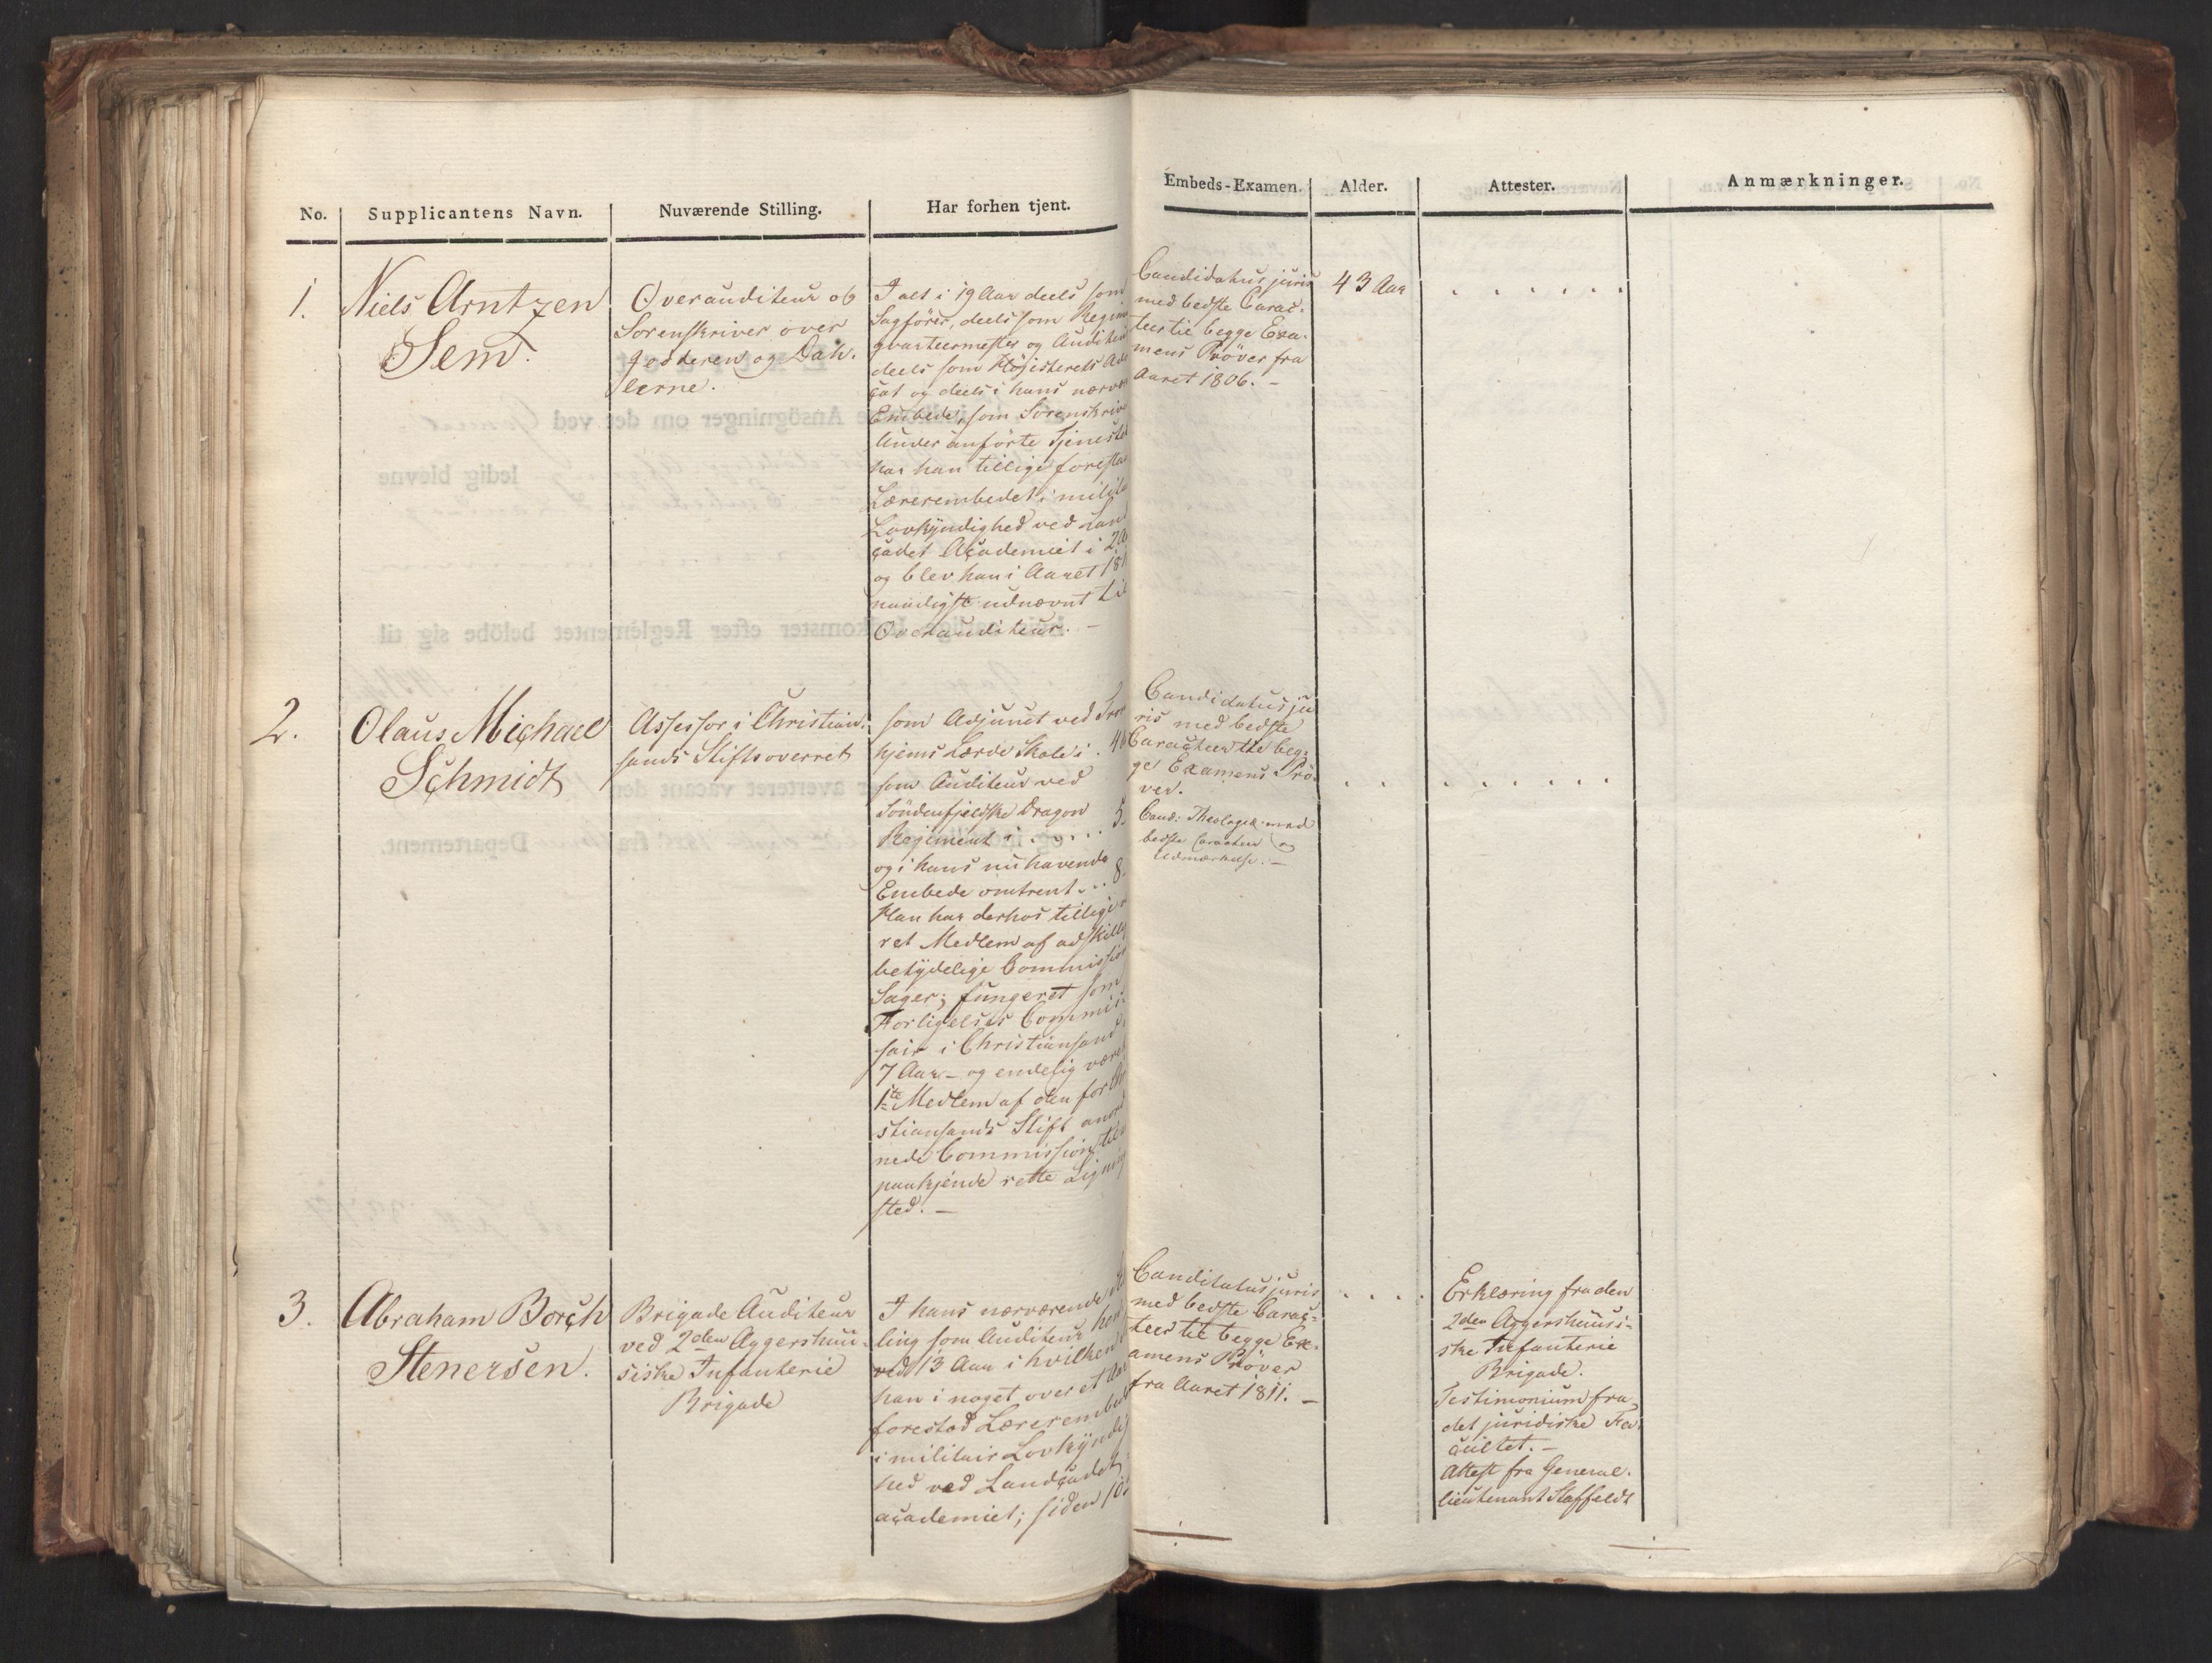 No. Supplicantens Navn. Nuværende Stilling. Har forhen tjent.
Embeds-Examen. Alder. Attester. Anmærkninger.
1.
Niels Arntzen
Sem.
Overauditeur og
Sorenskriver over
Jedderen og Dah-
lerne.
I alt i 19 Aar deels som
Sagfører, deels som Regim
qvarteermester og Auditeu
deels som Høiesterets Ad
cat og deels i hans nærvæ
Embede, som Sorenskriv
Under anførte Tjeneste
har han tillige foresta
Lærerembedet i milit
Lovkyndighed ved Land
cadet Academiet i 2 A
og blev han i Aaret 181
naadigst udnævnt til
Overauditeur. –
Candidatus juris
med bedste Carac-
teer til begge Exa-
mens Prøver fra
Aaret 1806. –
43 Aar
. . . . . .
2.
Olaus Michael
Schmidt
Assessor i Christian-
sands Stiftsoverret
som Adjunct ved Tron
hjems Lærde Skole i . 4
som Auditeur ved
Søndenfjeldske Dragon
Regiment i . . . . . 5.
og i hans nu havende
Embede omtrent . . 8.
Han har derhos tillige
ret Medlem af adskill
betydelige Commission
Sager; fungeret som
Forligelses Commis-
sair i Christiansand
7 Aar – og endelig være
1ste Medlem af den for Chri
stiansands Stift anord
nede Commission til
paakjende rette Ligning
sted. –
Candidatus ju
ris med bedste
Caracteer til beg-
ge Examens Prø-
ver.
Cand: Theologiæ med
bedste Caracteer og
Udmærkelse. –
. . . . . . . .
3.
Abraham Borch
Stenersen.
Brigade Auditeur
ved 2den Aggershuu-
siske Infanterie
Brigade
I hans nærværende
ling som Auditeur hen
ved 13 Aar i hvilken
han i noget over et Aar
forestod Lærerembed
i militair Lovkyndig
hed ved Landcadet
academiet; siden 18
Canditatus juris
med bedste Carac-
teer til begge Ex-
amens Prøver
fra Aaret 1811. –
. . . .
Erklæring fra den
2den Aggershuusi-
ske Infanterie
Brigade.
Testimonium fra
det juridiske Fa-
cultet. –
Attest fra General-
lieutenant Staffeldt